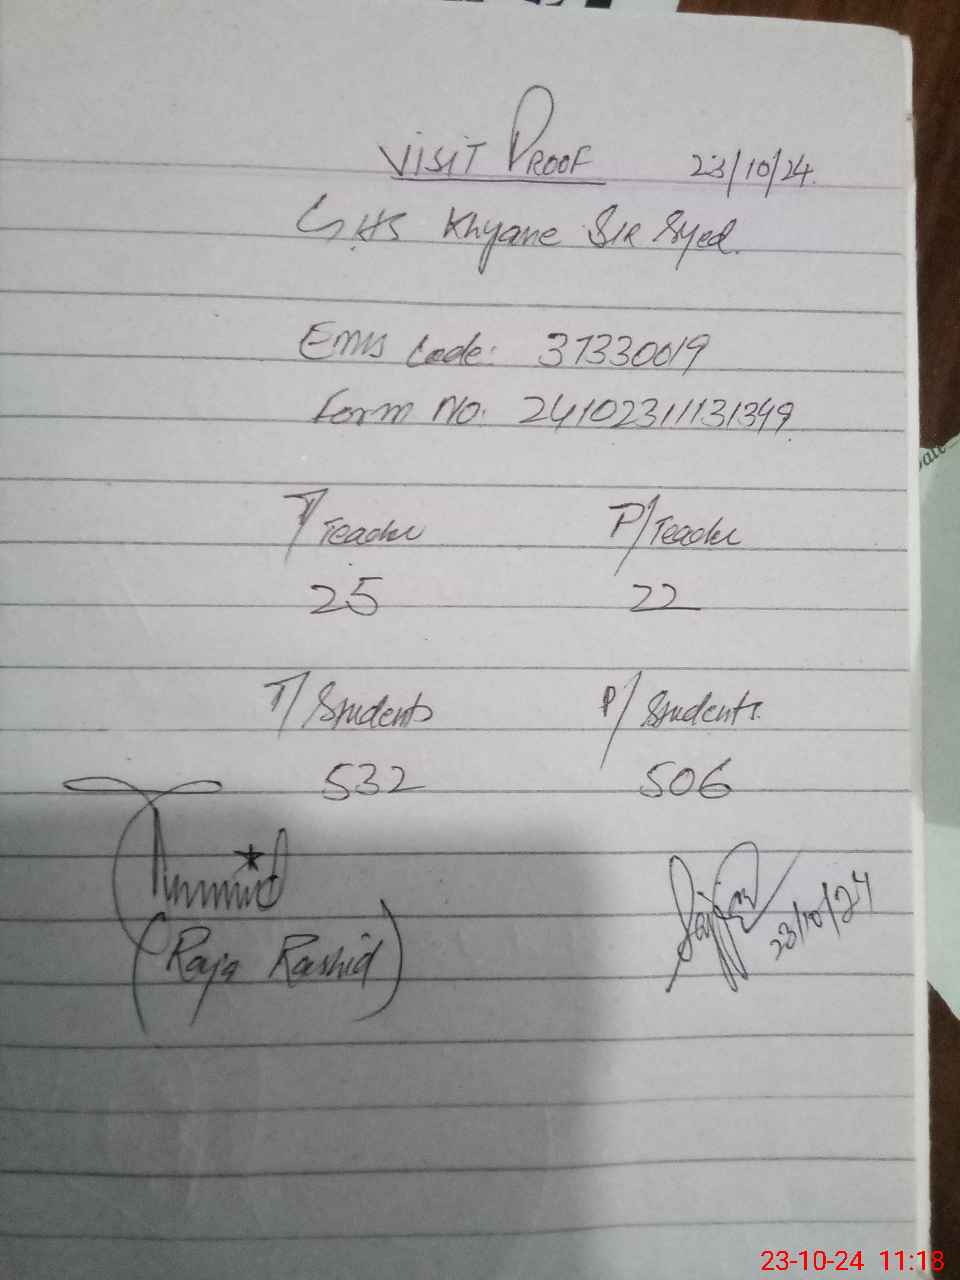 VISIT PROOF 23/10/24.
GHS Khyane Sir Syed.
Emis Code: 37330019
Form No. 2410231131349
T/Teacher P/Teacher
25 22
T/Students P/Students.
532 506
(Raja Rashid)
23/10/24
23-10-24 11:18